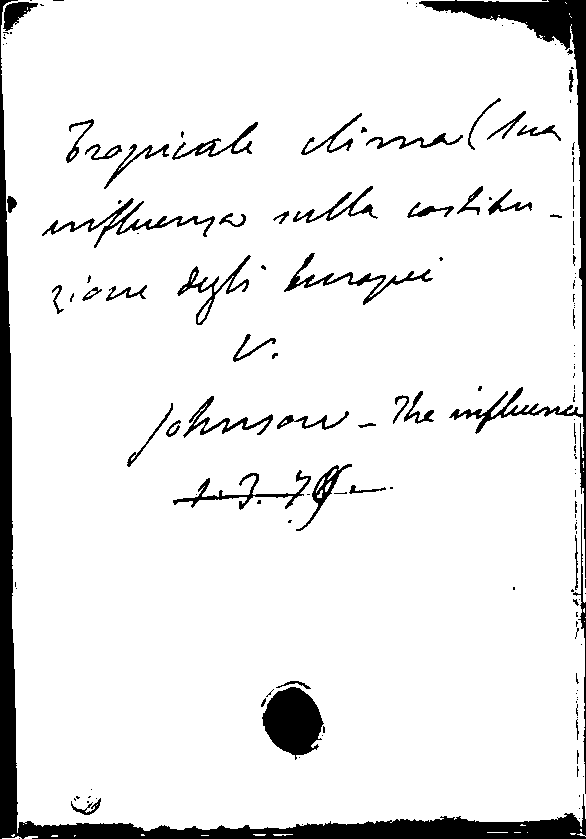 Tropicale clima (sua
influenza sulla costitu-
zione degli Europei
V.
Johnson - The influence
1.3.79.